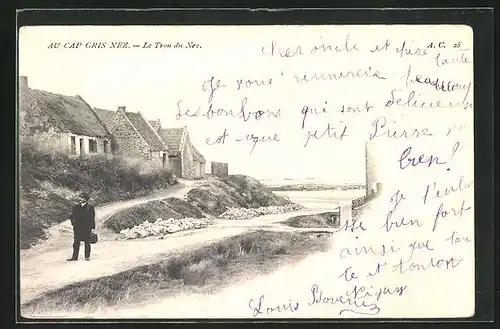 AU CAP GRIS NEZ. — Le Trou du Nez.
A. C. 25
cher oncle et chère tante
Je vous remercie beaucoup
les bonbons qui sont délicieuse
est-que petit Pierre
bien!
Je l'
bien fort
ainsi que tan
te et tonton
Louis